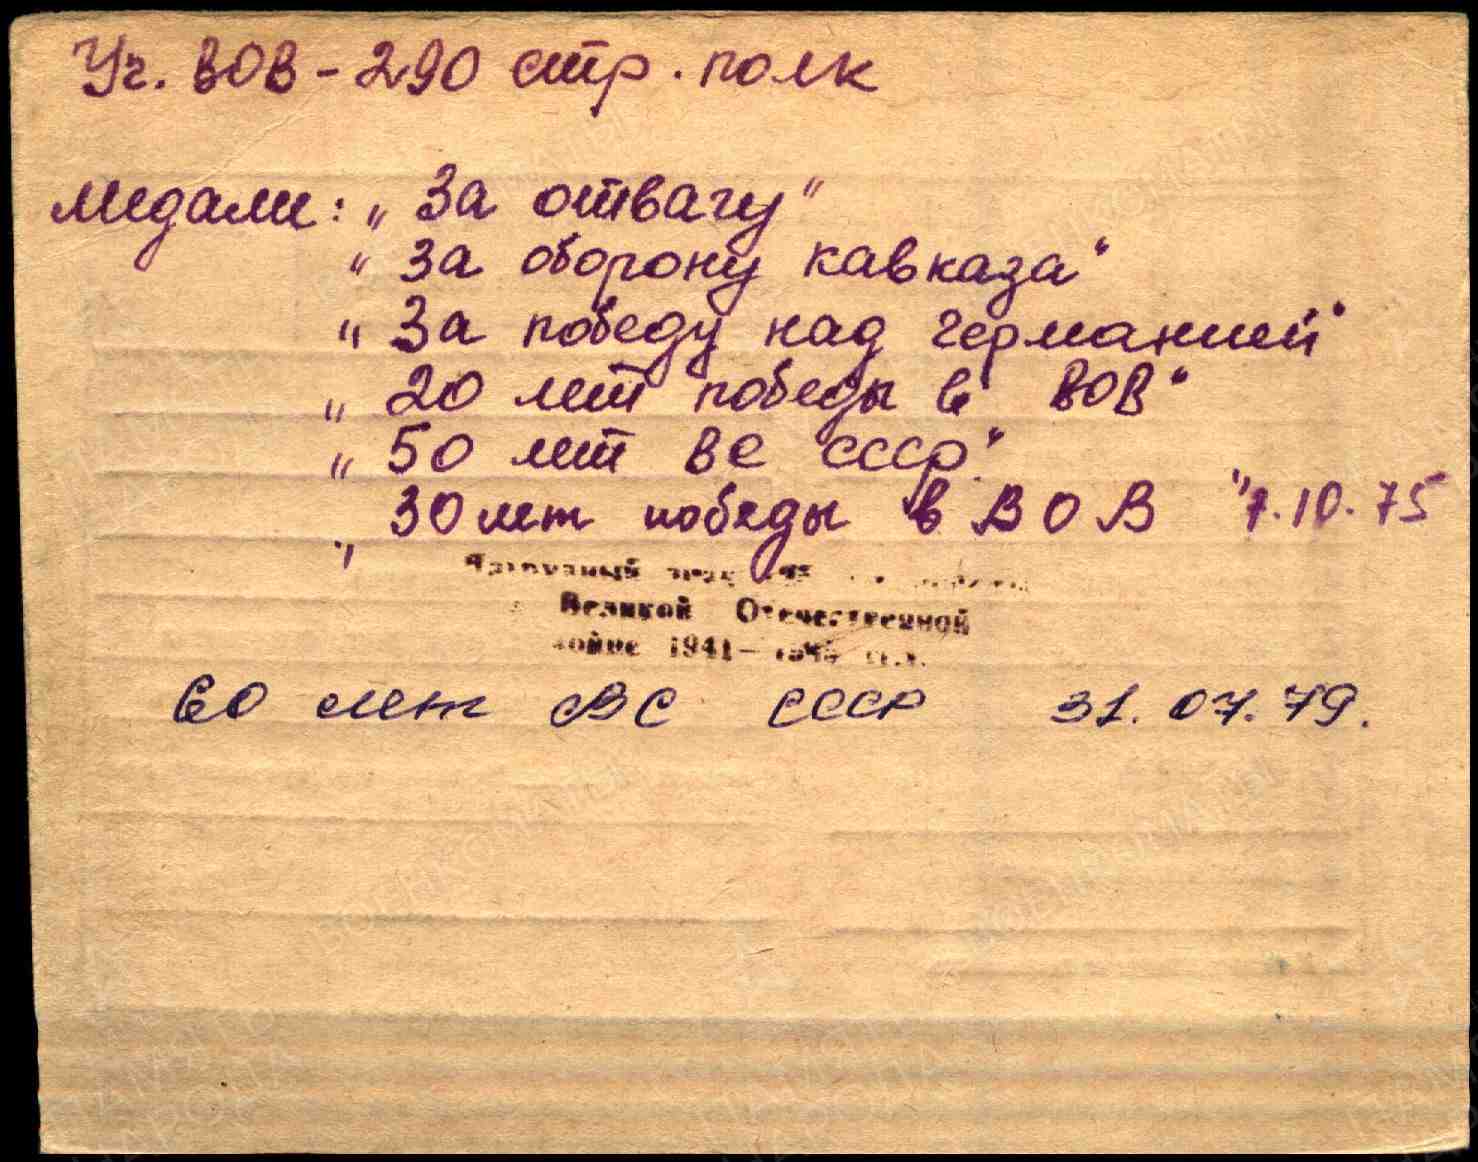 Уч. ВОВ - 290 стр. полк
медали: „За отвагу"
"За оборону кавказа"
"За победу над германией"
„20 лет победы в ВОВ"
„50 лет ВС СССР"
„30 лет победы в ВОВ" 7.10.75
Нагрудный знак
Великой Отечественной
войне 1941–1945 гг.
60 лет ВС СССР 31.07.79.